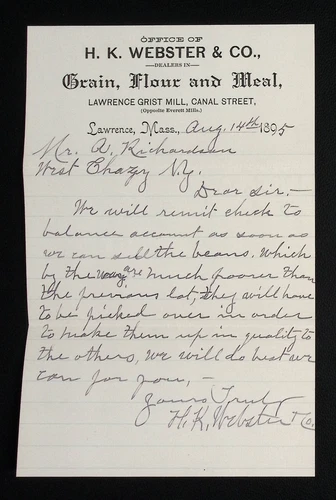 OFFICE OF
H. K. WEBSTER & CO.,
—DEALERS IN—
Grain, Flour and Meal,
LAWRENCE GRIST MILL, CANAL STREET,
(Opposite Everett Mills.)
Lawrence, Mass., Aug. 14th 1895
Mr. A. Richardson
West Chazy N.Y.
Dear Sir:-
We will remit check to
balance account as soon as
we can sell the beans. Which
by the way are much poorer than
the previous lot, they will have
to be picked over in order
to make them up in quality to
the others, we will do best we
can for you,-
Yours Truly
H. K. Webster & Co.